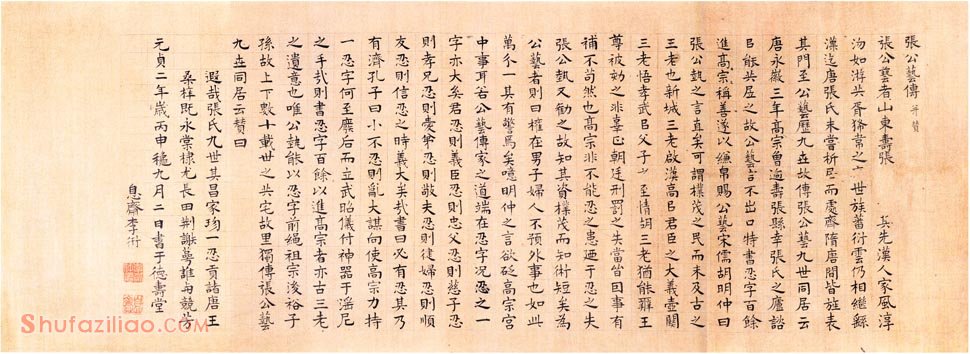 張公藝傳 并贊
張公藝者山東壽張 其先漢人家風淳
沕如游共胥 常之 世族蕃衍雲仍相継繇
漢迄唐張氏未嘗析居而處齋隋唐間皆旌表
其門至公藝歷九世故傳張公藝九世同居云
唐永徽三年高宗曾過壽張縣幸張氏之廬諮
㠯能共居之故公藝言不出口特書忍字百餘
進高宗稱善遂以縑帛賜公藝宋儒胡明仲曰
張公執之言直矣可謂樸茂之民而未及古之
三老也新城三老啟漢高㠯君臣之大義壺關
三老悟孝武㠯父子之至情胡三老猶能 王
尊被劾之非辜㠯朝廷刑罰之失當皆因事有
補不茍然也高宗非不能忍之患廼于忍之失
張公執又勸之故知其資樸茂而知術短矣為
公藝者則曰權在男子婦人不預外事也如此
萬分一具有警焉矣噫明仲之言欲砭高宗宮
中事耳若公藝傳家之道端在忍字况忍之一
字亦大矣君忍則義臣忍則忠父忍則慈子忍
則孝兄忍則愛弟忍則敬夫忍則從婦忍則順
友忍則信忍之時義大矣哉書曰必有忍其乃
有濟孔子曰小不忍則亂大謀向使高宗力持
一忍字何至 后而立武昭儀付神器于淫尼
之手哉則書忍字百餘以進高宗者亦古三老
之遺意也唯公執能以忍字前繩祖宗浚裕子
孫故上下數十載世之共宅故里獨傳張公藝
九世同居云贊曰
遐哉張氏九世其昌家珍一忍貢諸唐王
桑梓既永棠棣尤長田荆謝萼誰與競芳
元貞二年歲丙申穐九月二日書于德壽堂
息齋李衎
Shufaziliao.COM